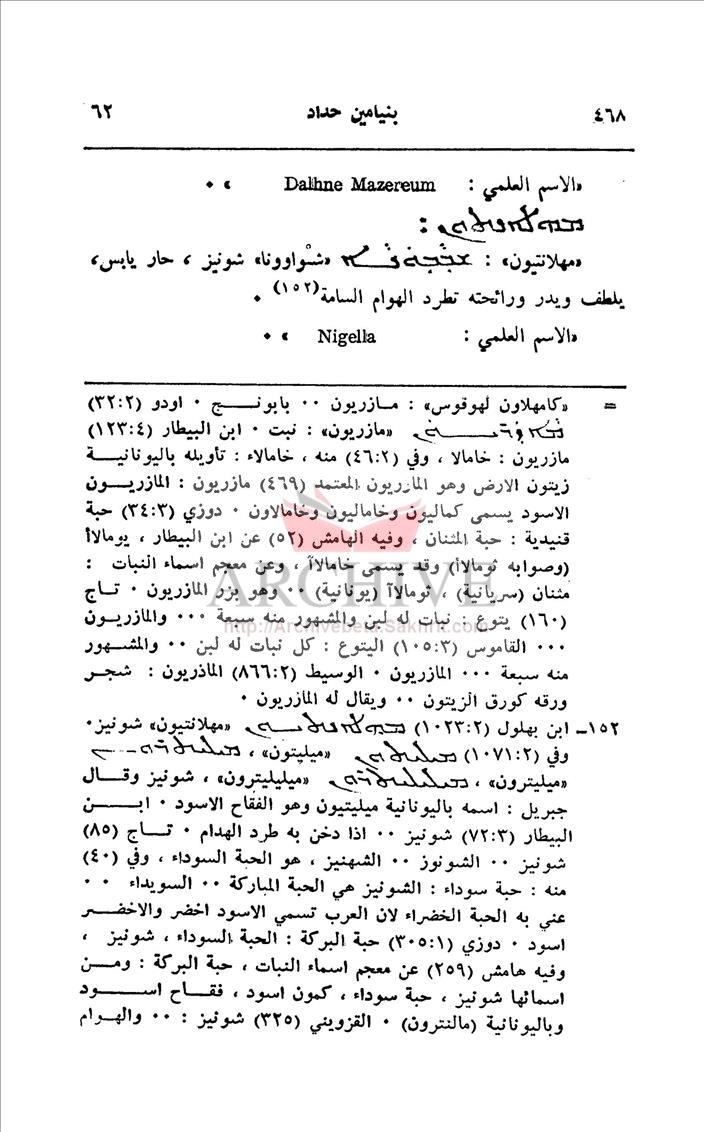 ٤٦٨ بنيامين حداد ٦٢
«الاسم العلمي : Dalhne Mazereum » ٠
«مهلانتيون» : «شوّاوونا» شونيز ، حار يابس،
يلطف ويدر ورائحته تطرد الهوام السامة(١٥٢) ٠
«الاسم العلمي : Nigella » ٠
= «كامهلاون لهوقوس» : مـازريون ٠٠ بابونـــج ٠ اودو (٣٢:٢)
«مازريون» : نبت ٠ ابن البيطار (١٢٣:٤)
مازريون : خامالا ، وفي (٤٦:٢) منه ، خامالاء : تأويله باليونانيــة
زيتون الارض وهو المازريون المعتمد (٤٦٩) مازريون : المازريــون
الاسود يسمى كماليون وخاماليون وخامالاون ٠ دوزي (٣٤:٣) حبة
قنيدية : حبة المثنان ، وفيه الهامش (٥٢) عن ابن البيطار ، يومالاأ
(وصوابه ثومالاأ) وقد يسمى خامالاآ ، وعن معجم اسماء النبات :
مثنان (سريانية) ، ثومالاآ (يونانية) ٠٠ وهو بزر المازريون ٠ تــاج
(١٦٠) يتوع : نبات له لبن والمشهور منه سبعة ٠٠٠ والمازريــون
٠٠٠ القاموس (١٠٥:٣) اليتوع : كل نبات له لبن ٠٠ والمشهــور
منه سبعة ٠٠٠ المازريون ٠ الوسيط (٨٦٦:٢) الماذريون : شجــر
ورقه كورق الزيتون ٠٠ ويقال له المازريون ٠
١٥٢ـ ابن بهلول (١٠٢٣:٢) «مهلانتيون» شونيز٠
وفي (١٠٧١:٢) «ميليتون» ،
«ميليترون» ، «ميليليترون» ، شونيز وقــال
جبريل : اسمه باليونانية ميليتيون وهو الفقاح الاسود ٠ ابــــن
البيطار (٧٢:٣) شونيز ٠٠ اذا دخن به طرد الهدام ٠ تــاج (٨٥)
شونيز ٠٠ الشونوز ٠٠ الشهنيز ، هو الحبة السوداء ، وفي (٤٠)
منه : حبة سوداء : الشونيز هي الحبة المباركة ٠٠ السويداء ٠٠
عني به الحبة الخضراء لان العرب تسمي الاسود اخضر والاخضــر
اسود ٠ دوزي (٣٠٥:١) حبة البركة : الحبة السوداء ، شونيز ،
وفيه هامش (٢٥٩) عن معجم اسماء النبات ، حبة البركة : ومــن
اسمائها شونيز ، حبة سوداء ، كمون اسود ، فقــاح اســـود
وباليونانية (مالنترون) ٠ القزويني (٣٢٥) شونيز : ٠٠ والهـوام
ARCHIVE
http://Archivebeta.Sakhrit.com